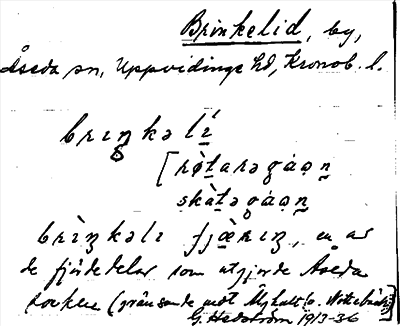 Brinkelid, by,
Åseda sn, Uppvidinge hd, Kronob. l.
brıŋkəlí
[røtarəgáɷn
skàtəgáɷn
brìŋkəlı fjærıŋ, en av
de fjärdedelar som utgjorde Åseda
socken (gränsande mot Älghult o. Nottebäck)
G. Hedström 1917-36